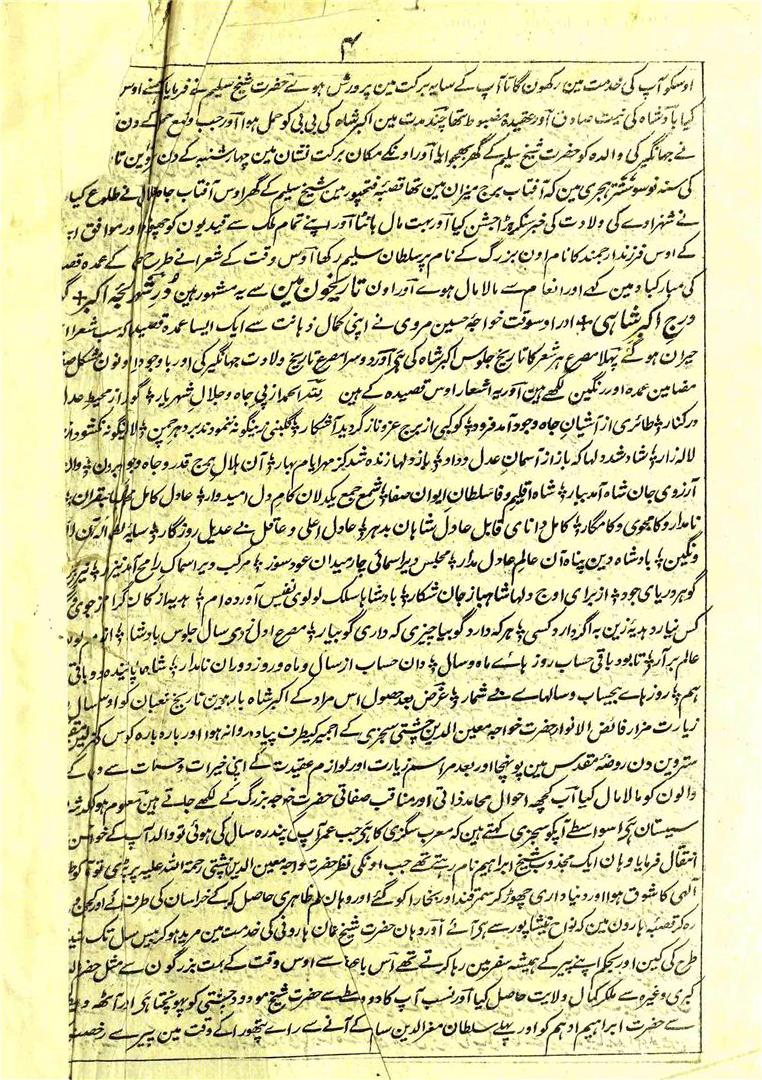 ۴
اوسکو آپ کی خدمت مین رکھون گا تا آپ کے سایہ برکت مین پرورش ہوئے حضرت شیخ سلیم نے فرمایا
کیا بادشاہ کی نیت صادق اور عقیدہ مضبوط تھا چند مدت مین اکبر شاہ کی بی بی کو حمل ہوا اور جب وضع حمل کے دن
نے جہانگیر کی والدہ کو حضرت شیخ سلیم کے گھر بھجوایا اور اونکے مکان برکت نشان مین چہار شنبہ کے دن
کی سنہ نوسو ہجری مین کہ آفتاب برج میزان مین تھا قصبہ فتحپور مین شیخ سلیم کے گھر اوس آفتاب جاہ جلال نے طلوع کیا
نے شہزادے کی ولادت کی خبر سنکر بڑا جشن کیا اور بہت مال بانٹا اور اپنے تمام ملک سے قیدیون کو چھوڑا اور موافق
کے اوس فرزند ارجمند کا نام اون بزرگ کے نام پر سلطان سلیم رکھا اوس وقت کے شعرا نے طرح کے عمدہ
کی مبارکبادین کہے اور انعام سے مالا مال ہوے اور اون تاریخون مین سے یہ مشہور ہین در شہوار لجہ اکبر
درج اکبر شاہی اور اوسوقت خواجہ حسین مروی نے اپنی کمال ذہانت سے ایک ایسا عمدہ قصیدہ کہ سب شعرا
حیران ہو گئے پہلا مصرع ہر شعر کا تاریخ جلوس اکبر شاہ کی ہے اور دوسرا مصرع تاریخ ولادت جہانگیر کی اور باوجود اون مشکل
مضامین عمدہ اور رنگین لکھے ہین اور یہ اشعار اوس قصیدہ کے ہین للہ الحمد از پی جاہ و جلال شہریار گوہر از محیط عدل
در کنار طائری از آشیان جاہ و جود آمد فرود کوکبی از برج عز و ناز گردید آشکار گلبنی زینگونہ ننمودند بر دہر چمن لالہ زینگونہ نکشود از
لالہ زار شاد شد دلہا کہ باز از آسمان عدل و داد باز دلہا زندہ شد کز مہر ایام بہار آن ہلال برج قدر و جاہ و جود
آرزوی جان شاہ آمد ببار شاہ اقلیم وفا سلطان ایوان صفا شمع جمع بیدلان کام دل امیدوار عادل کامل
نامدار و کامجوی و کامگار کامل دانای قابل عادل شاہان بدہر عادل اعلی و عاقل بے عدیل روزگار سایہ لطف الہ آن
و نگین بادشاہ دین پناہ آن عالم عادل مدار مجلس ویرا سمائی چار میدان عود سوز مرکب ویرا سماک رامح آمد نیزہ دار
گوہر دریای جود از برای اوج دلہا شاہباز جان شکار بادشاہا سلک لولوی نفیس آوردہ ام ہدیہ از کان
کس نیارد ہدیہ زین بہ اگر دارد کسی ہر کہ دارد گو بیا چیزی کہ داری گو بیار مصرع اول ز وی سال جلوس بادشاہ
عالم برآر تا بود باقی حساب روز ہاے ماہ و سال دان حساب از سال و ماہ و روز دوران نامدار شاہ پایندہ و باقی
ہم روز ہاے بیحساب و سالہاے بے شمار غرض بعد حصول اس مراد کے اکبر شاہ بارہوین تاریخ شعبان کو اوس سال
زیارت مزار فائض الانوار حضرت خواجہ معین الدین چشتی سجزی کے اجمیر کیطرف پیادہ روانہ ہوا اور بارہ بارہ کوس
سترہوین دن روضہ مقدس مین پہونچا اور بعد مراسم زیارت اور لوازم عقیدت کے اپنی خیرات و حسنات سے
والون کو مالا مال کیا آپ کچھ احوال محامد ذاتی اور مناقب صفاتی حضرت خواجہ بزرگ کے لکھے جاتے ہین معلوم ہو کہ
سیستان ہی اسواسطے آپکو سجزی کہتے ہین کہ معرب سگزی کا ہی جب عمر آپ کی پندرہ سال کی ہوئی تو والد آپ کے
انتقال فرمایا وہان ایک مجذوب شیخ ابراہیم نام رہتے تھے جب اونکی نظر حضرت خواجہ معین الدین چشتی رحمۃ اللہ علیہ پر پڑی تو آپ کو
الہی کا شوق ہوا اور دنیا داری چھوڑ کر سمرقند اور بخارا کو گئے اور وہان علم ظاہری حاصل کر کے خراسان کی طرف آئے اور
رہ کر قصبہ ہارون مین کہ نواح نیشاپور سے ہی آئے اور وہان حضرت شیخ عثمان ہارونی کی خدمت مین مرید ہو کر بیس سال تک
طرح کی کین اور بحکم اپنے پیر کے ہمیشہ سفر مین رہا کرتے تھے اس باعث سے اوس وقت کے بہت بزرگون سے مثل حضرت
کبری وغیرہ سے ملکر کمال ولایت حاصل کیا اور نسب آپ کا دو واسطے سے حضرت شیخ مودود چشتی کو پہونچتا ہی اور آٹھ
سے حضرت ابراہیم ادہم کو اور پہلے سلطان معز الدین سام کے آنے سے راے پتھورا کے وقت مین پیر سے رخصت